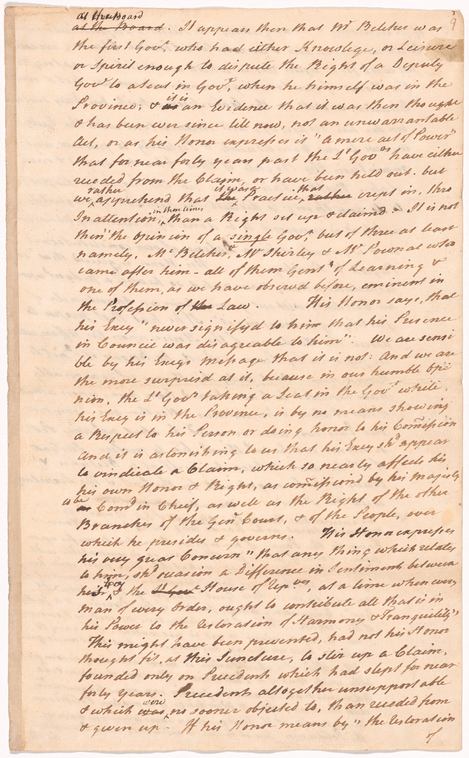 at the Board
9
at the Board. It appears then that Mr Belcher was
the first Govr. who had either Knowlege, or Leisure
or Spirit enough to dispute the Right of a Deputy
Govr. to a Seat in Govt, when he himself was in the
Province; & it is an Evidence that it was then thought
& has been ever since till now, not an unwarrantable
Act, or as his Honor expresses it "a mere act of Power"
that for near forty years past the Lt Govrs have either
receded from the Claim, or have been held out. but
we rather apprehend that it was a Practice, that rather crept in, thro
Inattention, in then times than a Right set up & claimd. It is not
then the Opinion of a single Govr, but of three at least
namely, Mr Belcher, Mr Shirley & Mr Pownal who
came after him - all of them Gentn of Learning &
one of them, as we have observd before, eminent in
the Profession of the Law. His Honor says, that
his Excy "never signifyd to him that his Presence
in Council was disagreable to him". We are sensi
ble by his Excys Message that it is not: And we are
the more surprisd at it, because in our humble Opi
nion, the Lt Govr taking a Seat in the Govt while
his Excy is in the Province, is by no means showing
a Respect to his Person or doing honor to his Comission
and it is astonishing to us that his Excy shd appear
to vindicate a Claim, which so nearly affects his
his own Honor & Right, as comissiond by his Majesty
Comdr in Chief, as well as the Right of the other
Branches of the Genl Court, & of the People, over
which he presides & governs. His Honor expresses
his very great Concern "that any thing which relates
to him, shd occasion a Difference in Sentiments between
his Excy & the House of Repves, at a time when every
man of every Order, ought to contribute all that is in
his Power to the restoration of Harmony & Tranquility"
This might have been prevented, had not his Honor
thought fit, at this Juncture, to stir up a Claim,
founded only on Precedents which had slept for near
forty years. Precedents altogether unsupportable
& which were no sooner objected to, than receded from
& given up. If his Honor means by "the restoration
of